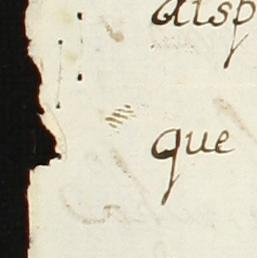 disp
que